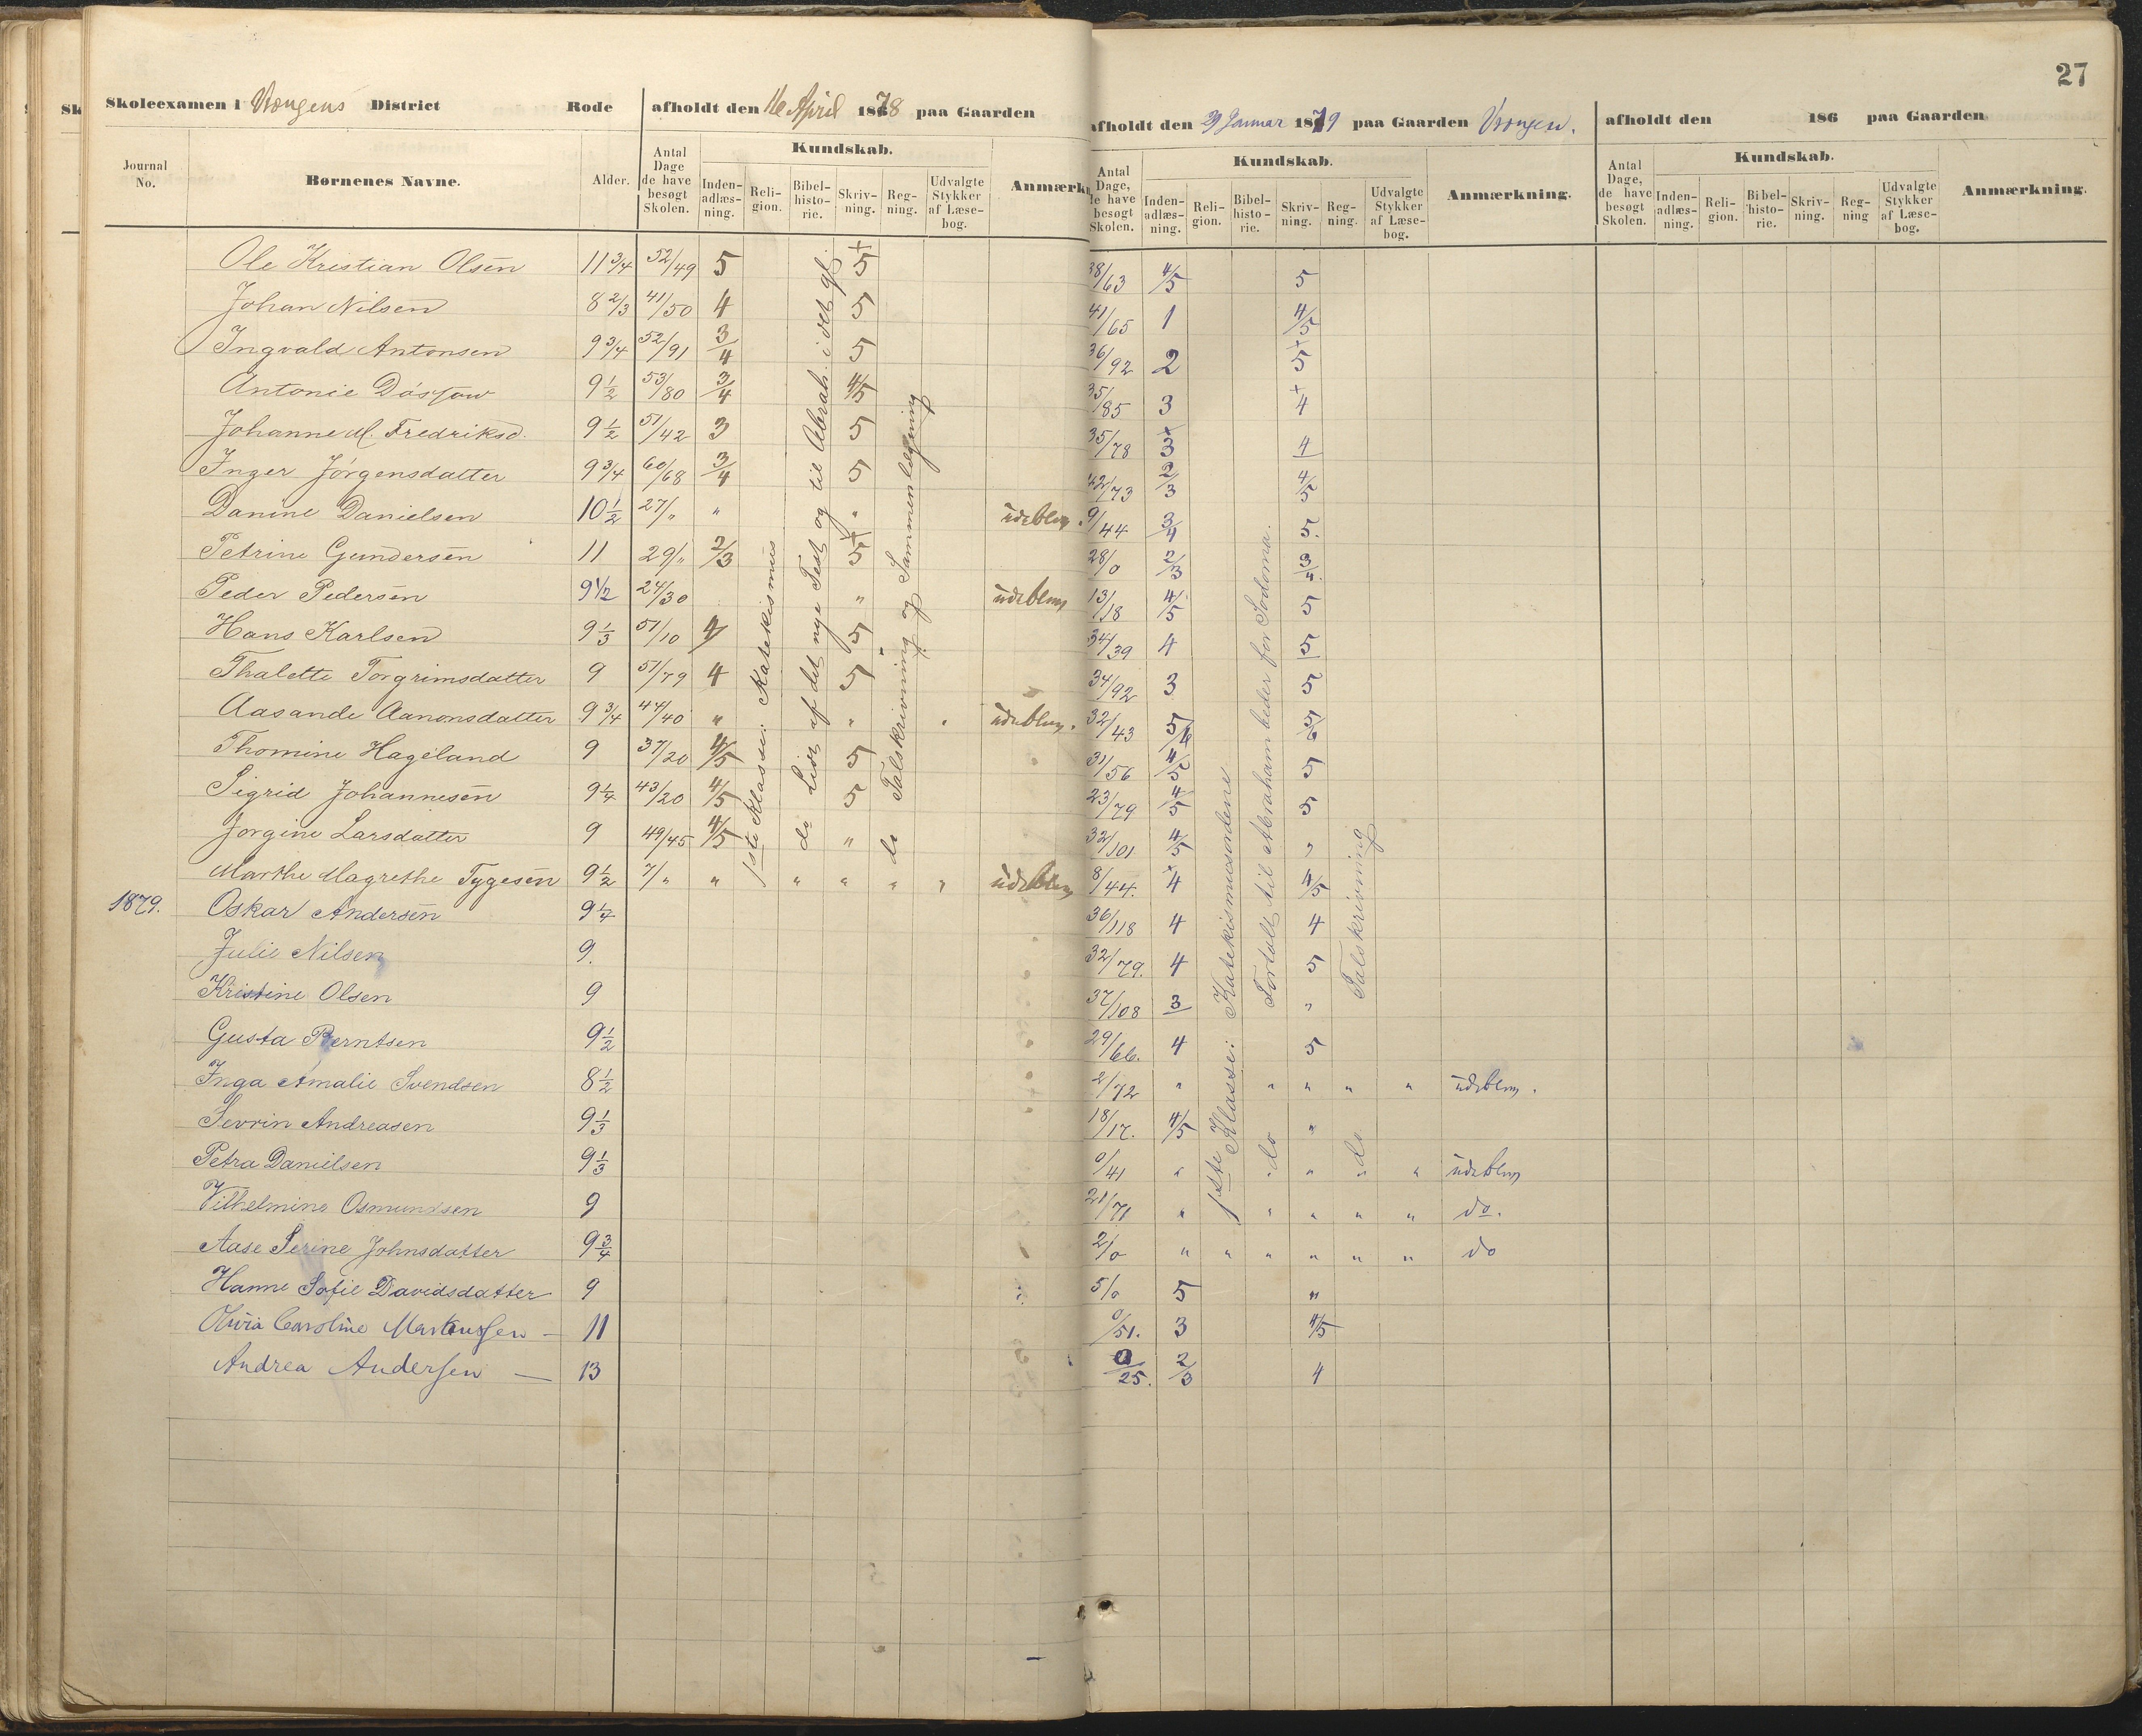 27
Skoleexamen i Vrongens District Rode afholdt den 16 April 1878 paa Gaarden
afholdt den 29 Januar 1879 paa Gaarden Vrongen. afholdt den 186 paa Gaarden
Journal No. Børnenes Navne. Alder. Antal Dage de have besøgt Skolen. Kundskab. Indenadlæsning. Religion. Bibelhistorie. Skrivning. Regning. Udvalgte Stykker af Læsebog. Anmærkn
Antal Dage, de have besøgt Skolen. Kundskab. Indenadlæsning. Religion. Bibelhistorie. Skrivning. Regning. Udvalgte Stykker af Læsebog. Anmærkning.
Antal Dage, de have besøgt Skolen. Kundskab. Indenadlæsning. Religion. Bibelhistorie. Skrivning. Regning Udvalgte Stykker af Læsebog. Anmærkning.
Ole Kristian Olsen 11 3/4 52/49 5 +5 38/63 4/5 5
Johan Nilsen 8 2/3 41/50 4 5 41/65 1 4/5
Ingvald Antonsen 9 3/4 52/91 3/4 5 36/92 2 +5
Antonie 9 1/2 53/80 3/4 4/5 35/85 3 +4
Johanne M. Fredriksd. 9 1/2 51/42 3 5 35/78 +3 4
Inger Jörgensdatter 9 3/4 60/68 3/4 5 42/73 2/3 4/5
Danine Danielsen 10 1/2 27/" " " udeblev. 9/44 3/4 5.
Petrine Gundersen 11 29/" 2/3 +5 28/0 2/3 3/4.
Peder Pedersen 9 1/2 24/30 " udeblev 13/18 4/5 5
Hans Karlsen 9 1/3 51/10 4 5 34/39 4 5
Thalette Torgrimsdatter 9 51/79 4 5 34/92 3 5
Aasande Aanonsdatter 9 3/4 44/40 " " " udeblev. 32/43 5/6 5/6
Thomine Hageland 9 37/20 4/5 5 31/56 4/5 5
Sigrid Johannesen 9 1/4 43/20 4/5 5 23/79 4/5 5
Jorgine Larsdatter 9 49/45 4/5 do " do 32/101 4/5 "
Marthe Magrethe Tygesen 9 1/2 7/" " " " " " udeblev 8/44. +4 4/5
1879. Oskar Andersen 9 1/4 36/118 4 4
Julie Nilsen 9. 32/79. 4 5
Kristine Olsen 9 37/108 3 "
Gusta Berntsen 9 1/2 29/66. 4 5
Inga Amalie Svendsen 8 1/2 2/72 " " " " " udeblev.
Sevrin Andreasen 9 1/3 18/17. 4/5 do " do
Petra Danielsen 9 1/3 0/41 " " " " " udeblev
Vilhelmine Osmundsen 9 21/71 " " " " " do.
Aase Serine Johnsdatter 9 3/4 2/0 " " " " " " do
Hanne Sofie Davidsdatter 9 5/0 5 "
Olivia Caroline Markussen - 11 0/51. 3 4/5
Andrea Andersen - 13 0/25. 2/3 4
1ste Klasse: Katekismus
Læst af det nye Test og til Abrah. i det gl.
Talskrivning og Sammenlægning
1ste Klasse: Katekismusordene
Fortalt til Abraham beder for Sodoma.
Talskrivning